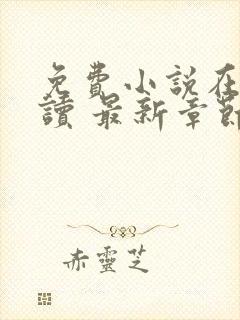 免費小說在
讀 最新章節
赤靈芝